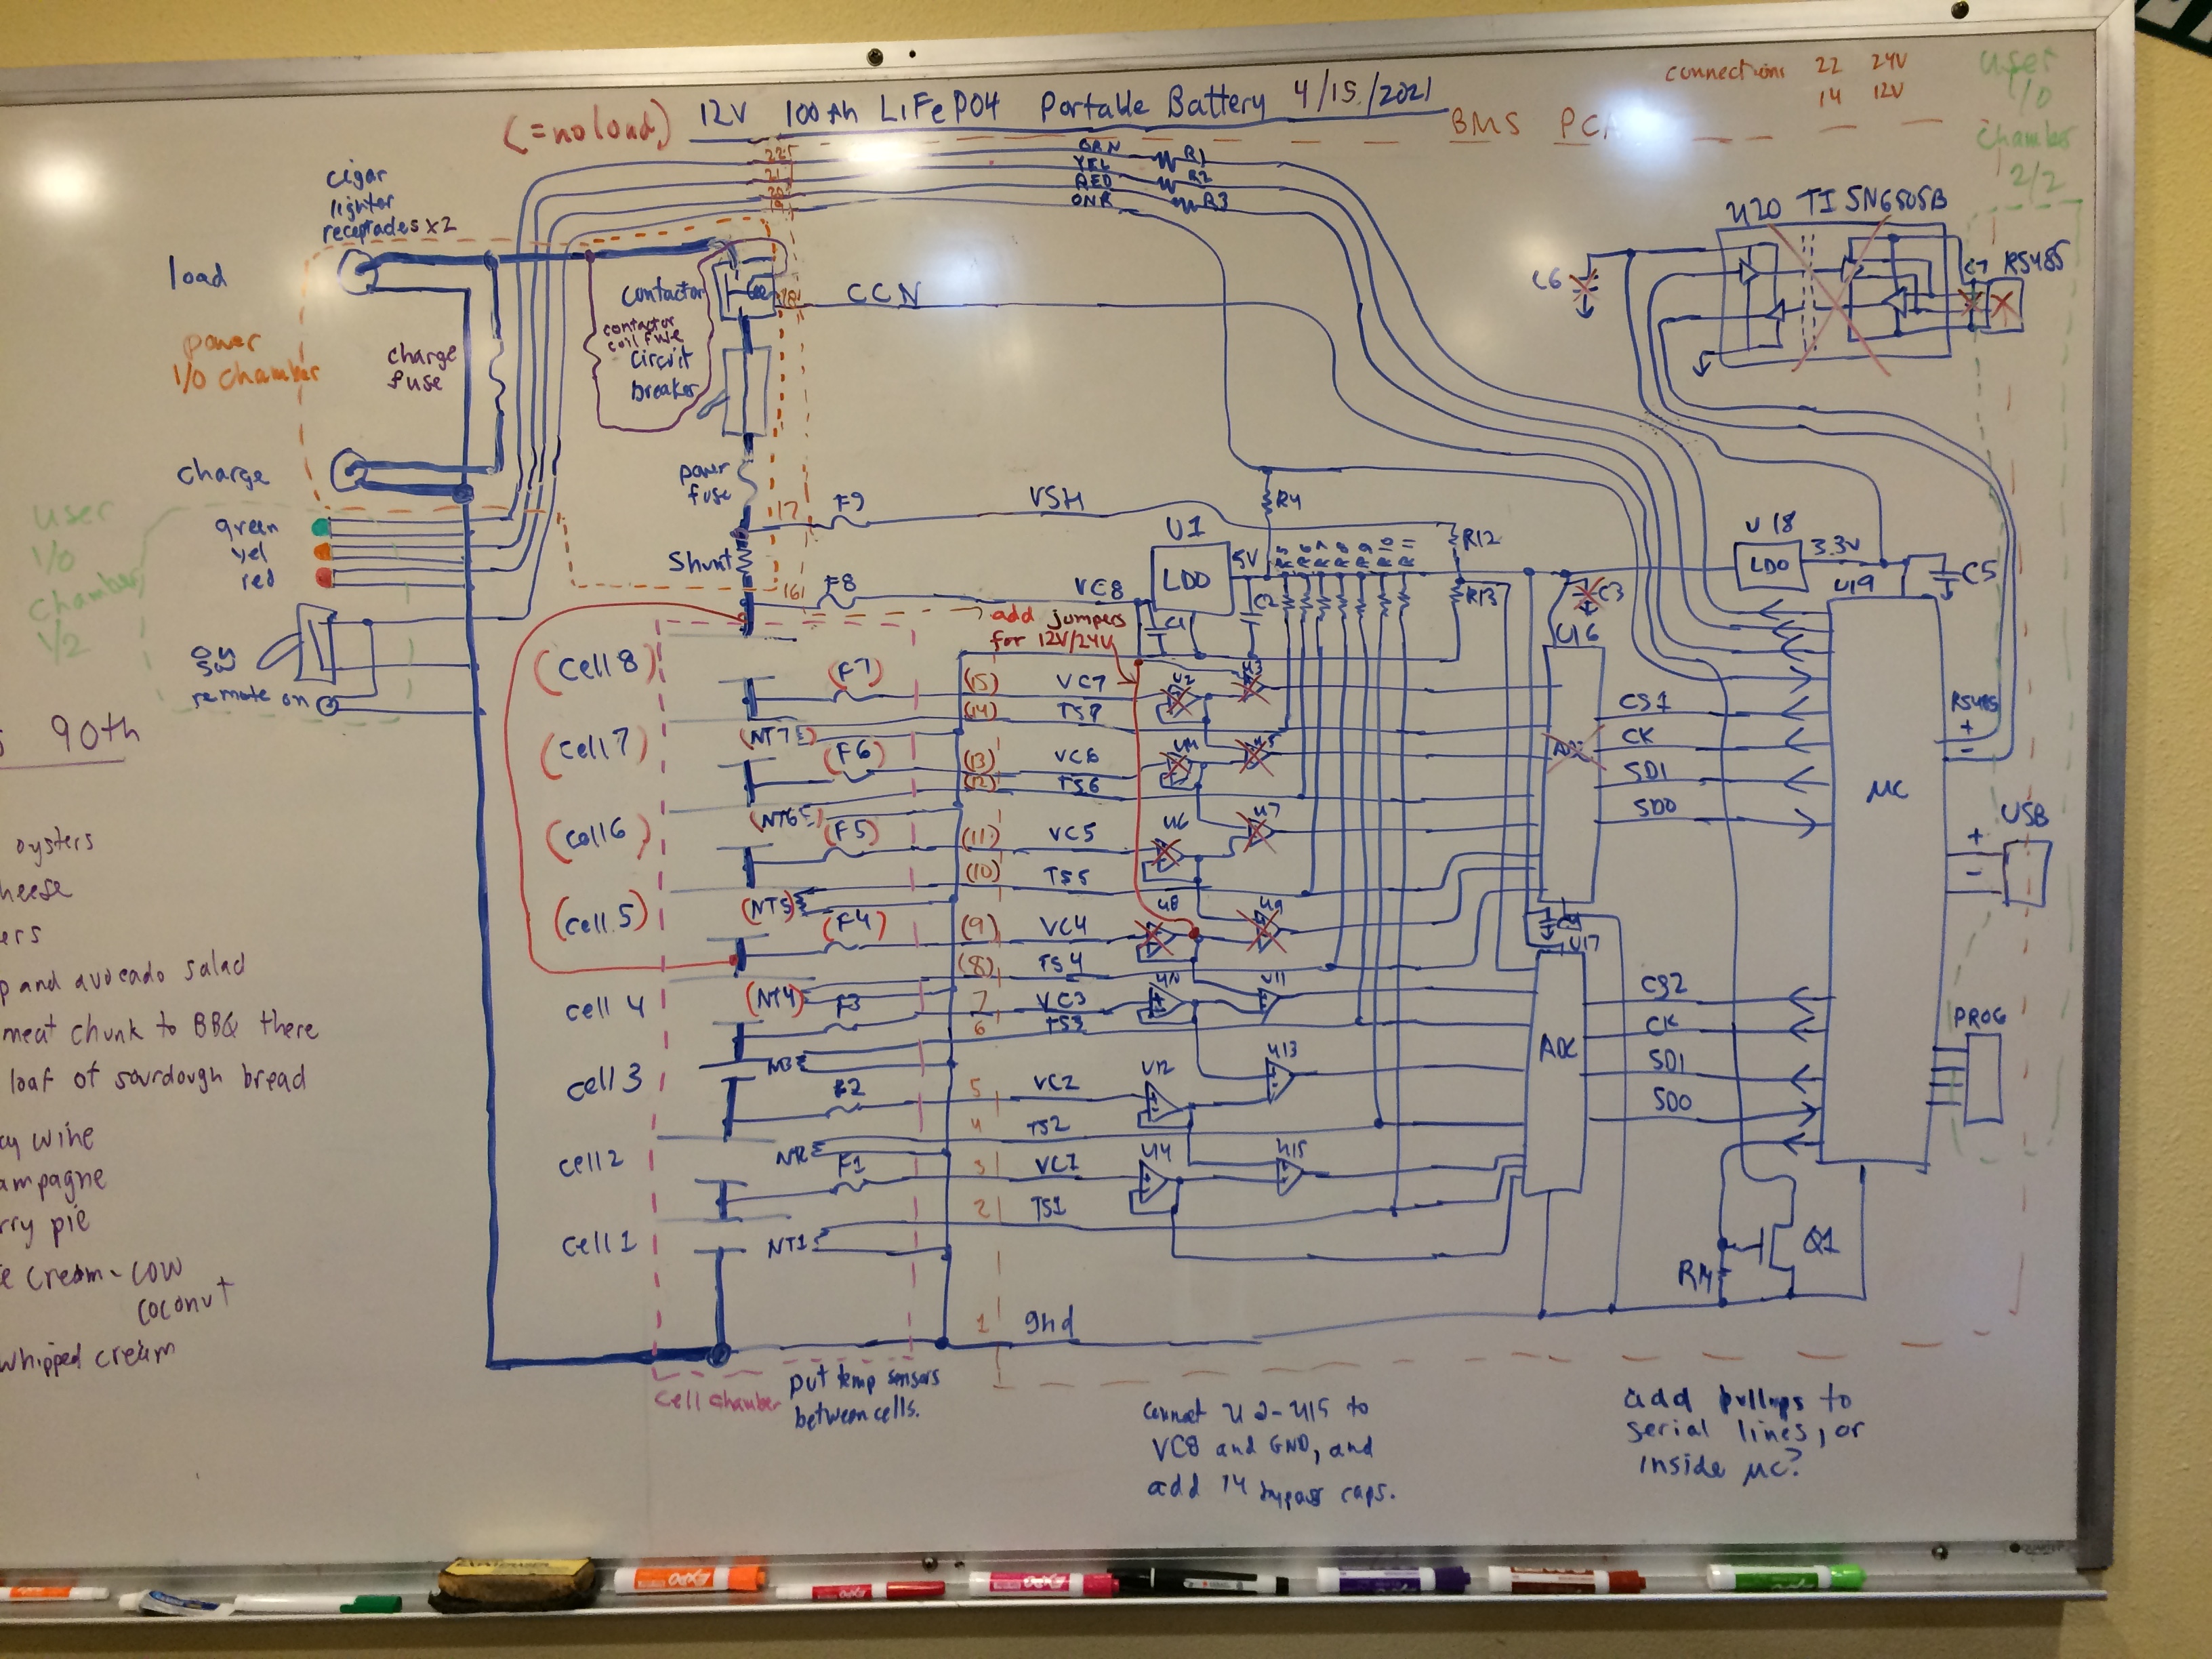 connections 22 24V
14 12V
user
I/O
chamber
2/2
(=no load)
12V 100Ah LiFePO4 Portable Battery 4/15/2021
BMS PCA
22
21
20
19
GRN R1
YEL R2
RED R3
ONR
cigar
lighter
receptacles x2
load
power
I/O chamber
charge
fuse
charge
contactor
contactor
coil fuse
circuit
breaker
18
CCN
power
fuse
17
F9
VSH
Shunt
16
F8
VC8
U20 TI SN6505B
C6
C7
RS485
user
I/O
chamber
1/2
green
yel
red
on
sw
remote on
U1
LDO
5V
R4
R5
R6
R7
R8
R9
R10
R11
R12
R13
C1
C2
C3
U16
U18
LDO
3.3V
U19
C5
add jumpers
for 12V/24V
(cell 8)
(F7)
(15) VC7
U2
U3
(14) TS7
(cell 7)
(NT7)
(F6)
(13) VC6
U5
(12) TS6
(cell 6)
(NT6)
(F5)
(11) VC5
U6
U7
(10) TS5
(cell 5)
(NT5)
(F4)
(9) VC4
U8
U9
(8) TS4
cell 4
(NT4)
F3
7 VC3
U10
U11
6 TS3
cell 3
NT3
F2
5 VC2
U12
U13
4 TS2
cell 2
F1
3 VC1
U14
U15
2 TS1
cell 1
NT1
1 gnd
ADC
CS1
CK
SDI
SDO
C4
U17
ADC
CS2
CK
SDI
SDO
µC
RS485
+
-
USB
+
-
PROG
R14
Q1
cell chamber
put temp sensors
between cells.
connect U2-U15 to
VC8 and GND, and
add 14 bypass caps.
add pullups to
serial lines, or
inside µC?
90th
oysters
heese
ers
p and avocado salad
meat chunk to BBQ there
loaf of sourdough bread
cy wine
ampagne
rry pie
e cream - cow
coconut
whipped cream
EXPO
EXPO
EXPO